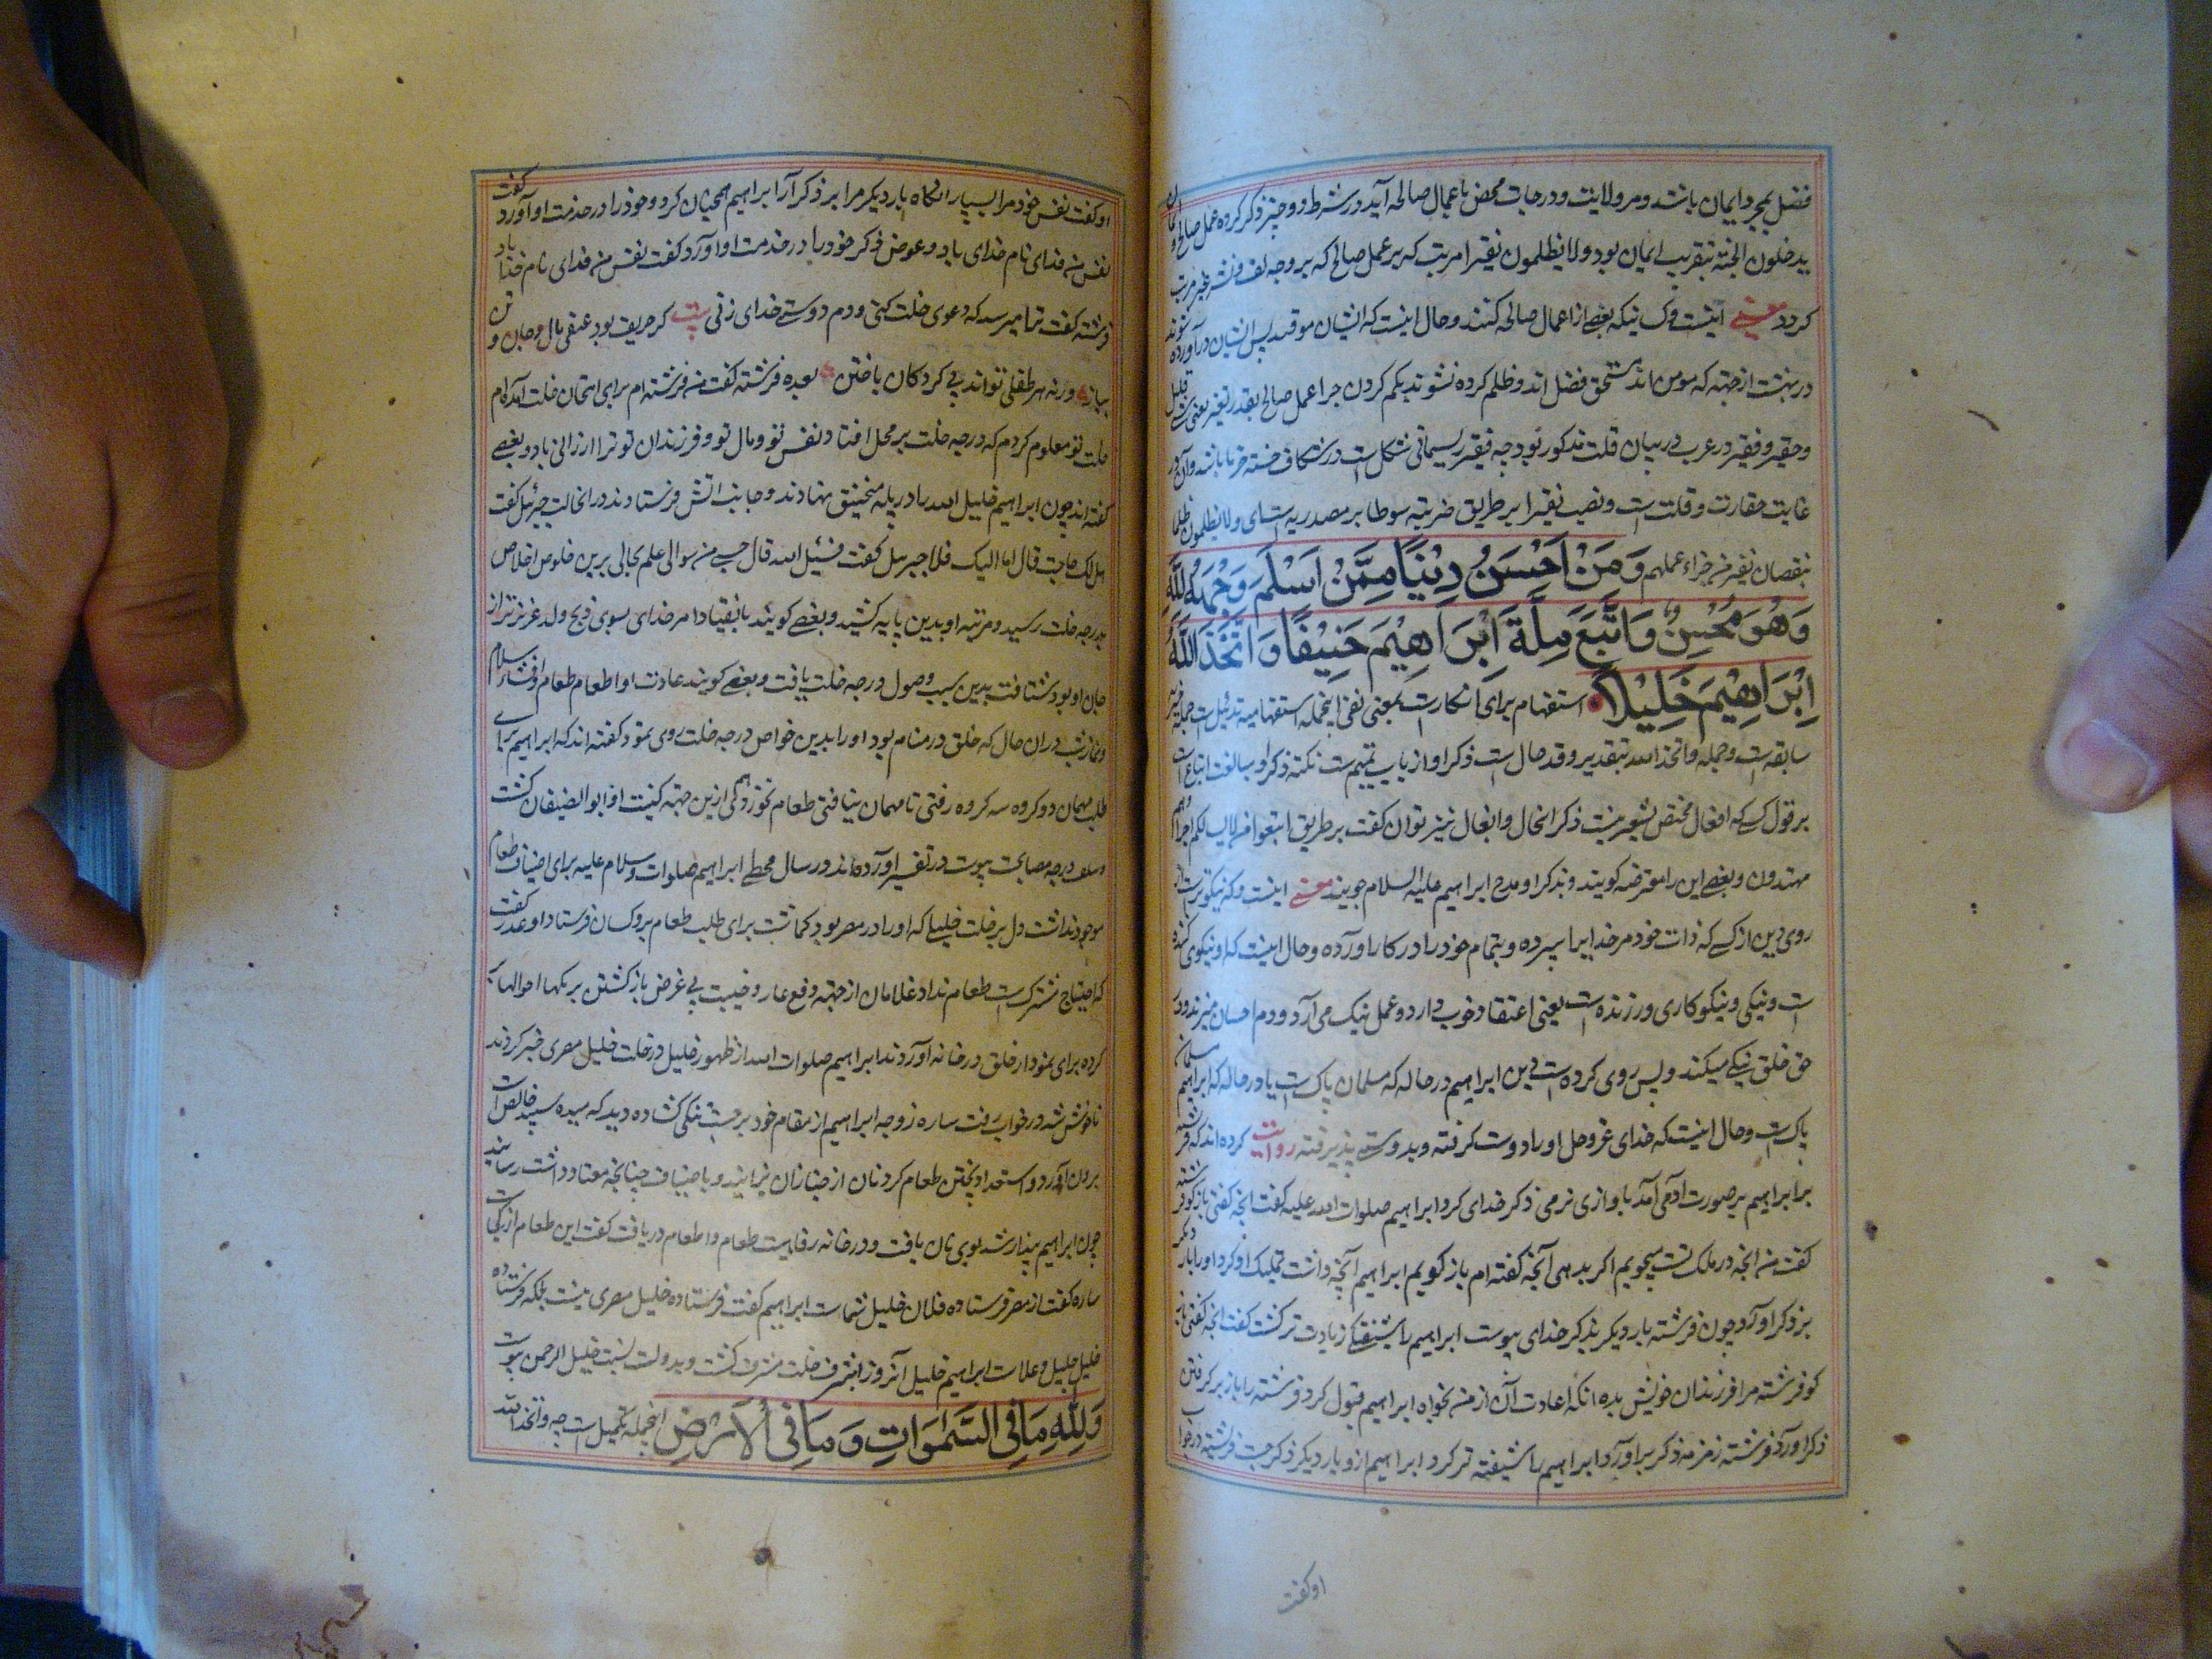 فضل بمجرد ایمان باشد و مر ولایت و درجات محض باعمال صالحه آید در شرط دو چیز ذکر کرده عمل صالح و
یدخلون الجنة بتقریب ایمان بود و لا یظلمون نقیرا مرتب که بر عمل صالح که بر وجه لف و نشر غیر مرتب
کردد معنی اینست و کسانیکه بعضی از اعمال صالحه کنند و حال اینست که ایشان موقنند پس ایشان درآورده شوند
در بهشت از جهته که مومن اند مستحق فضل اند و ظلم کرده نشوند بکم کردن جزا عمل صالح بقدر نقیر یعنی شی قلیل
و حقیر و فقیر در عرب در بیان قلت مذکور بود چه نقیر ریسمانی شکل است در شکاف خسته خرما باشد و آن در
غایت حقارت و قلت است و نصب نقیرا بر طریق ضربته سوطا بر مصدریه است ای و لا یظلمون ظلما
بنقصان نقیر من جزاء عملهم وَمَنْ اَحْسَنُ دِيْنًا مِمَّنْ اَسْلَمَ وَجْهَهُ لِلّٰهِ
وَهُوَ مُحْسِنٌ وَاتَّبَعَ مِلَّةَ اِبْرَاهِيْمَ حَنِيْفًا وَاتَّخَذَ اللّٰهُ
اِبْرَاهِيْمَ خَلِيْلًا استفهام برای انکارست بمعنی نفی اینجمله استفهامیه تذییل است جمله خبریه
سابقه است و جمله واتخذ الله بتقدیر وقد حال است ذکر او از باب تتمیم است نکته ذکر او مبالغت اتباع است
بر قول کسی که افعال مختص بشعر نیست ذکر انحال و ابغال نیز توان کفت بر طریق اتبعوا من لا یسالکم اجرا و هم
مهتدون و بعضی این را معترضه کویند و بذکر او مدح ابراهیم علیه السلام جویند معنی اینست و که نیکوترست از
روی دین از کسی که ذات خود مر خدایرا سپرده و بتمام خود را در کار او آورده و حال اینست که او نیکوی کننده
است و نیکی و نیکوکاری ورزنده است یعنی اعتقاد خوب دارد و عمل نیک می آرد و دم احسان میزند و در
حق خلق نیکی میکند و پس روی کرده است دین ابراهیم در حاله که مسلمان پاک است یا در حاله که ابراهیم مسلمان
پاک است و حال اینست که خدای عز و جل او را دوست کرفته و بدوستی پذیرفته روایت کرده اند که فرشته
بر ابراهیم بر صورت آدمی آمد باوازی نرمی ذکر خدای کرد ابراهیم صلوات الله علیه کفت انچه کفتی باز کو فرشته
کفت من انچه در ملک تست میجویم اکر بدهی آنچه کفته ام باز کویم ابراهیم آنچه داشت تملیک او کرد او را بار دیکر
بر ذکر آورد چون فرشته بار دیکر بذکر خدای پیوست ابراهیم را شیفتکی زیادت تر کشت کفت انچه کفتی باز
کو فرشته مرا فرزندان خویش بده انکه اعادت آن از من بخواه ابراهیم قبول کرد فرشته را باز بر کرفتن
ذکر آورد فرشته زمزمه ذکر بر آورد ابراهیم را شیفته تر کرد ابراهیم از و بار دیکر ذکر جست فرشته درخواست
او کفت
او کفت نفس خود مرا بسپار انکاه بار دیکر مرا بر ذکر آر ابراهیم همچنان کرد و خود را در خدمت او آورد کفت
نفس من فدای نام خدای باد و عوض ذکر خود را در خدمت او آورد کفت نفس من فدای نام خدا باد
فرشته کفت ترا میرسد که دعوی خلت کنی و دم دوستی خدای زنی بیت کر حریف بود عنقی مال و جان و تن
بباز ورنه هر طفلی تواند بی کردکان باختن بعده فرشته کفت من فرشته ام برای امتحان خلت آمده ام
خلت تو معلوم کردم که درجه خلت بر محل افتاد نفس تو و مال تو و فرزندان تو ترا ارزانی باد و بعضی
کفته اند چون ابراهیم خلیل الله را در پله منجنیق نهادند و جانب اتش فرستادند در انحالت جبرئیل کفت
هل لک حاجت قال اما الیک فلا جبرئیل کفت فسئل الله قال حسبی من سوالی علم بحالی برین خلوص اخلاص
بدرجه خلت رسید و مرتبه او بدین پایه کشید و بعضی کویند بانقیاد امر خدای بسوی ذبح ولد عزیزتر از
جان او بود شتافت بدین سبب وصول درجه خلت یافت و بعضی کویند عادت او اطعام طعام و افشاء سلام
و نماز شب در ان حال که خلق در منام بود او را بدین خواص درجه خلت روی نمود کفته اند که ابراهیم برای
طلب مهمان دو کروه سه کروه رفتی تا مهمان نیافتی طعام نخوردی هم ازین جهته کنیت او ابوالضیفان کشت
موجود نداشت دل بر خلت خلیلی که او را در مصر بود کماشت برای طلب طعام برو کسان فرستاد او عذر کفت
که احتیاج مشترک است طعام نداد غلامان از جهته دفع عار و خیبت بی غرض باز کشتن بر یکها احوالها پر
کرده برای نمودار خلق در خانه آوردند ابراهیم صلوات الله از ظهور خلیل در خلت خلیل مصری خبر کردند
ناخوش شد در خواب رفت ساره زوجه ابراهیم از مقام خود برجست تنکی کشاده دید که میده سپید خالص است
برون آورد و استعداد پختن طعام کرد نان از خبازان پزانید و باضیاف چنانچه معتاد داشت رسانید
چون ابراهیم بیدار شد بوی نان یافت و در خانه رفاهیت طعام و اطعام دریافت کفت این طعام از کجاست
ساره کفت از مصر فرستاده فلان خلیل شماست ابراهیم کفت فرستاده خلیل مصری نیست بلکه فرستاده
خلیل جلیل و علاست ابراهیم خلیل آنروز بشرف خلت مشرف کشت و بدولت نسبت خلیل الرحمن پیوست
وَلِلّٰهِ مَا فِى السَّمٰوَاتِ وَمَا فِى الْاَرْضِ اینجمله تکمیل است چه واتخذ الله